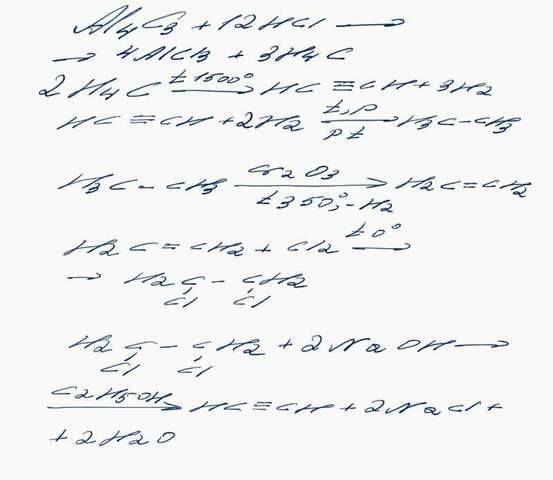 Al4C3 + 12HCl →
→ 4AlCl3 + 3H4C
2H4C t1500° → HC ≡ CH + 3H2
HC ≡ CH + 2H2 t,p Pt → H3C – CH3
H3C – CH3 Cr2O3 t350°, -H2 → H2C = CH2
H2C = CH2 + Cl2 t0° →
→ H2C – CH2
Cl Cl
H2C – CH2 + 2NaOH →
Cl Cl
C2H5OH → HC ≡ CH + 2NaCl +
+ 2H2O